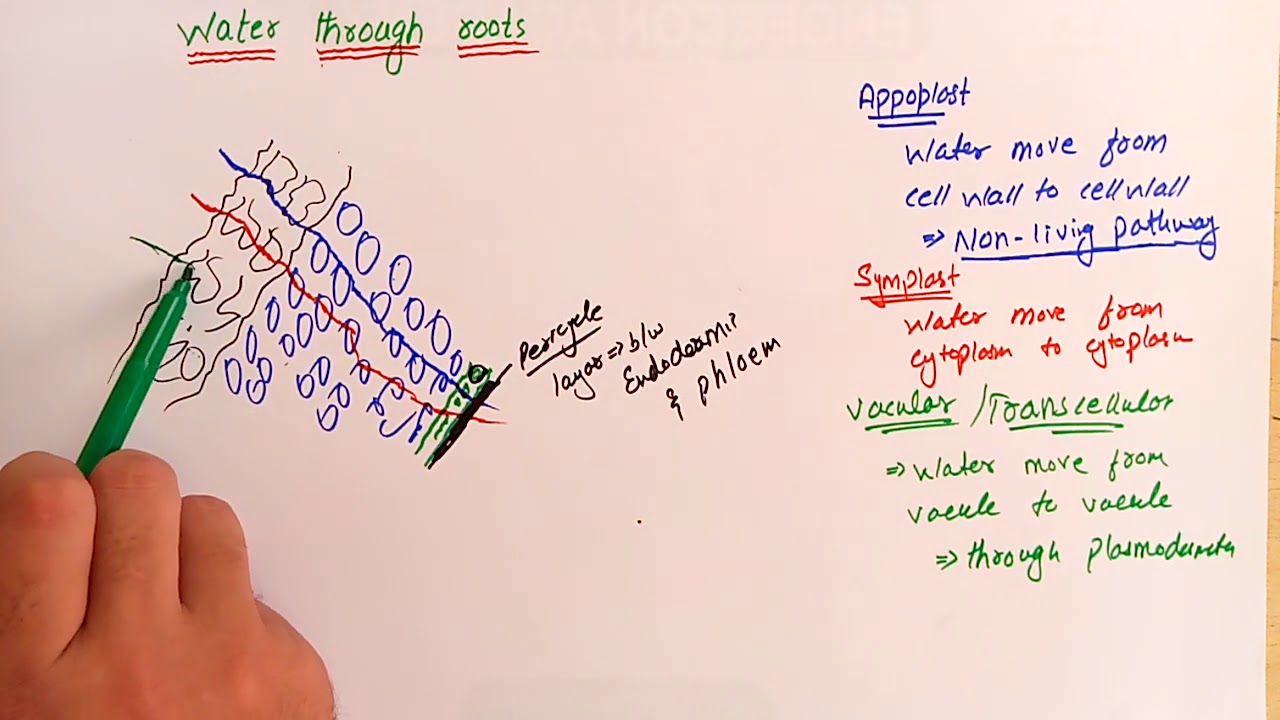 Water through roots
Appoplast
Water move from
cell wall to cellwall
⇒ Non-living pathway
Symplast
Water move from
cytoplasm to cytoplasm
Vacular / Transcellular
⇒ Water move from
vacule to vacule
⇒ through plasmodesmata
Pericycle
layer ⇒ b/w
Endodermis
& phloem